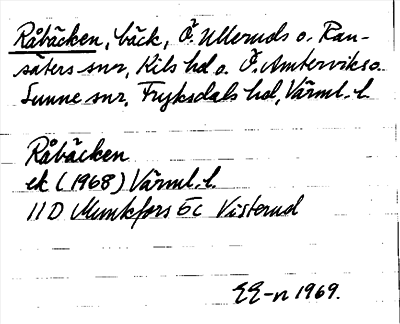 Råbäcken, bäck, Ö. Ulleruds o. Ran-
säters snr, Kils hd o. Ö. Ämterviks o.
Sunne snr, Fryksdals hd, Värml. l.
Råbäcken
ek (1968) Värml. l.
11D Munkfors 5c Visterud
EE-n 1969.